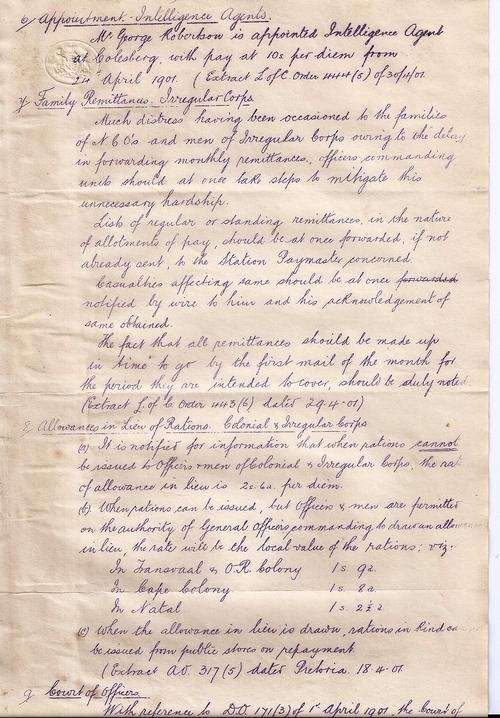 6/ Appointment - Intelligence Agents.
Mr George Robertson is appointed Intelligence Agent
at Colesberg, with pay at 10s per diem from
24th April 1901. (Extract L of C Order 444(5) of 30/4/01
7/ Family Remittances - Irregular Corps
Much distress having been occasioned to the families
of N.C.O's and men of Irregular Corps owing to the delay
in forwarding monthly remittances, officers commanding
units should at once take steps to mitigate this
unnecessary hardship.
Lists of regular or standing remittances, in the nature
of allotments of pay, should be at once forwarded, if not
already sent, to the Station Paymaster concerned.
Casualties affecting same should be at once forwarded
notified by wire to him and his acknowledgement of
same obtained.
The fact that all remittances should be made up
in time to go by the first mail of the month for
the period they are intended to cover, should be duly noted
(Extract L. of C. Order 443(6) dated 29.4.01)
8. Allowances in Lieu of Rations. Colonial & Irregular Corps
(a) It is notified for information that when rations cannot
be issued to Officers & men of Colonial & Irregular Corps. the
of allowance in lieu is 2s. 6d. per diem.
(b) When rations can be issued, but Officers & men are permitted
on the authority of General Officers, commanding to draw an
in lieu, the rate will be the local value of the rations; viz.
In Transvaal & O.R. Colony 1s. 9d.
In Cape Colony 1s. 8d
In Natal 1s. 2½d
(c) When the allowance in lieu is drawn, rations in kind
be issued from public stores on repayment
(Extract A.O. 317(5) dated Pretoria. 18.4.01
9. Court of Officers.
With reference to D.O. 171(3) of 1st April 1901 the Court of